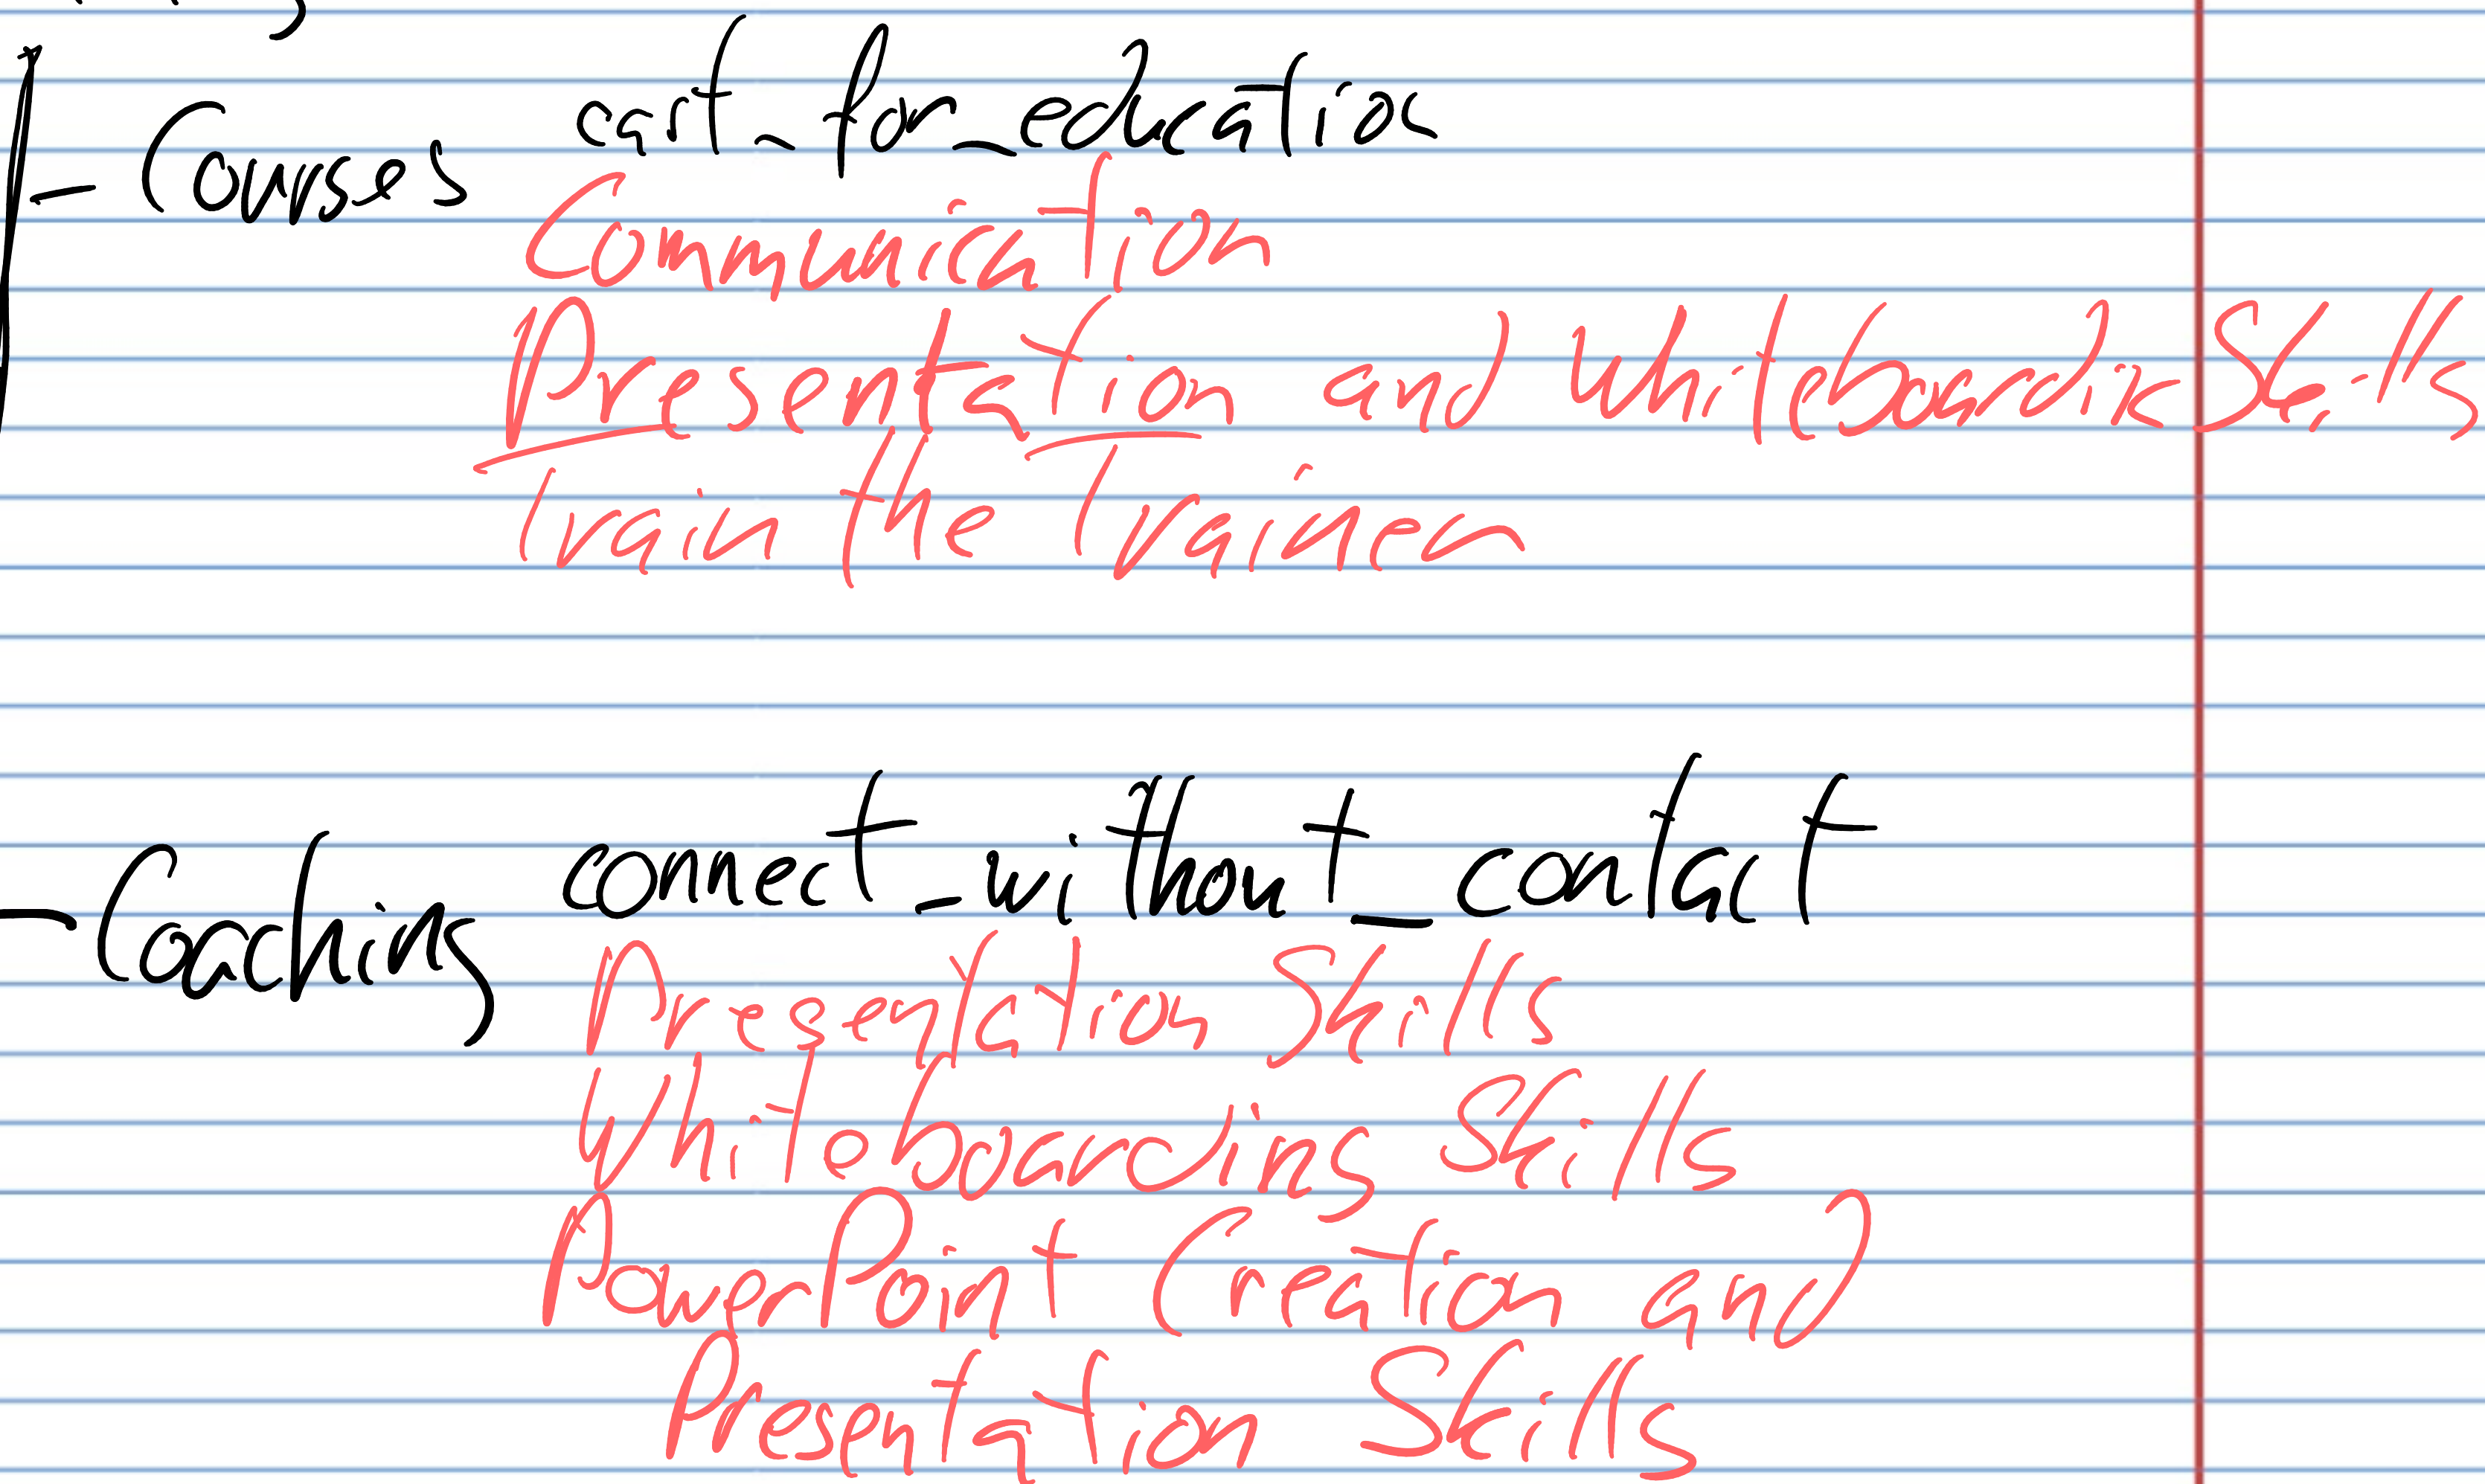 Courses cart_for_education
Communication
Presentation and Whiteboarding Skills
Train the Trainer
Coaching connect_without_contact
Presentation Skills
Whiteboarding Skills
PowerPoint Creation and
Presentation Skills